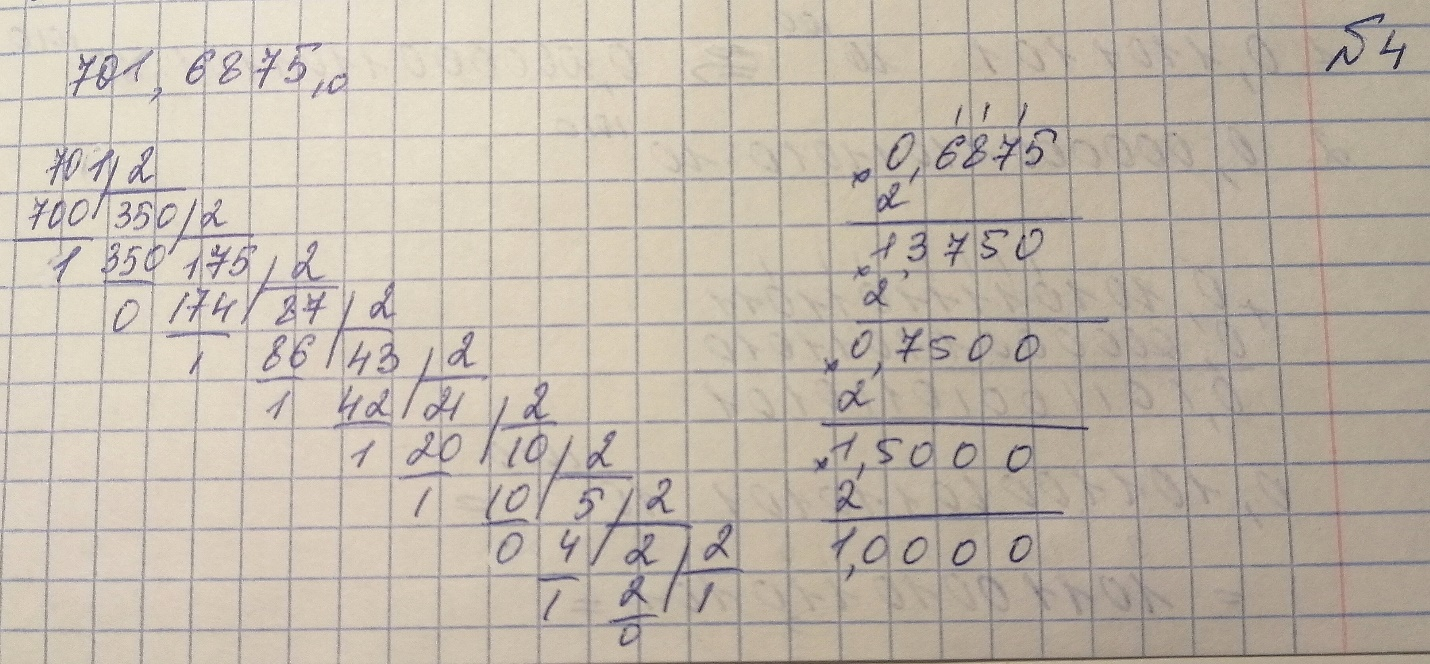 №4
701,6875,0
701 2
700 350 2
1 350 175 2
0 174 87 2
1 86 43 2
1 42 21 2
1 20 10 2
1 10 5 2
0 4 2 2
1 2 1
0
1 1 1
0,6875
× 2
1,3750
× 2
0,7500
× 2
1,5000
× 2
1,0000